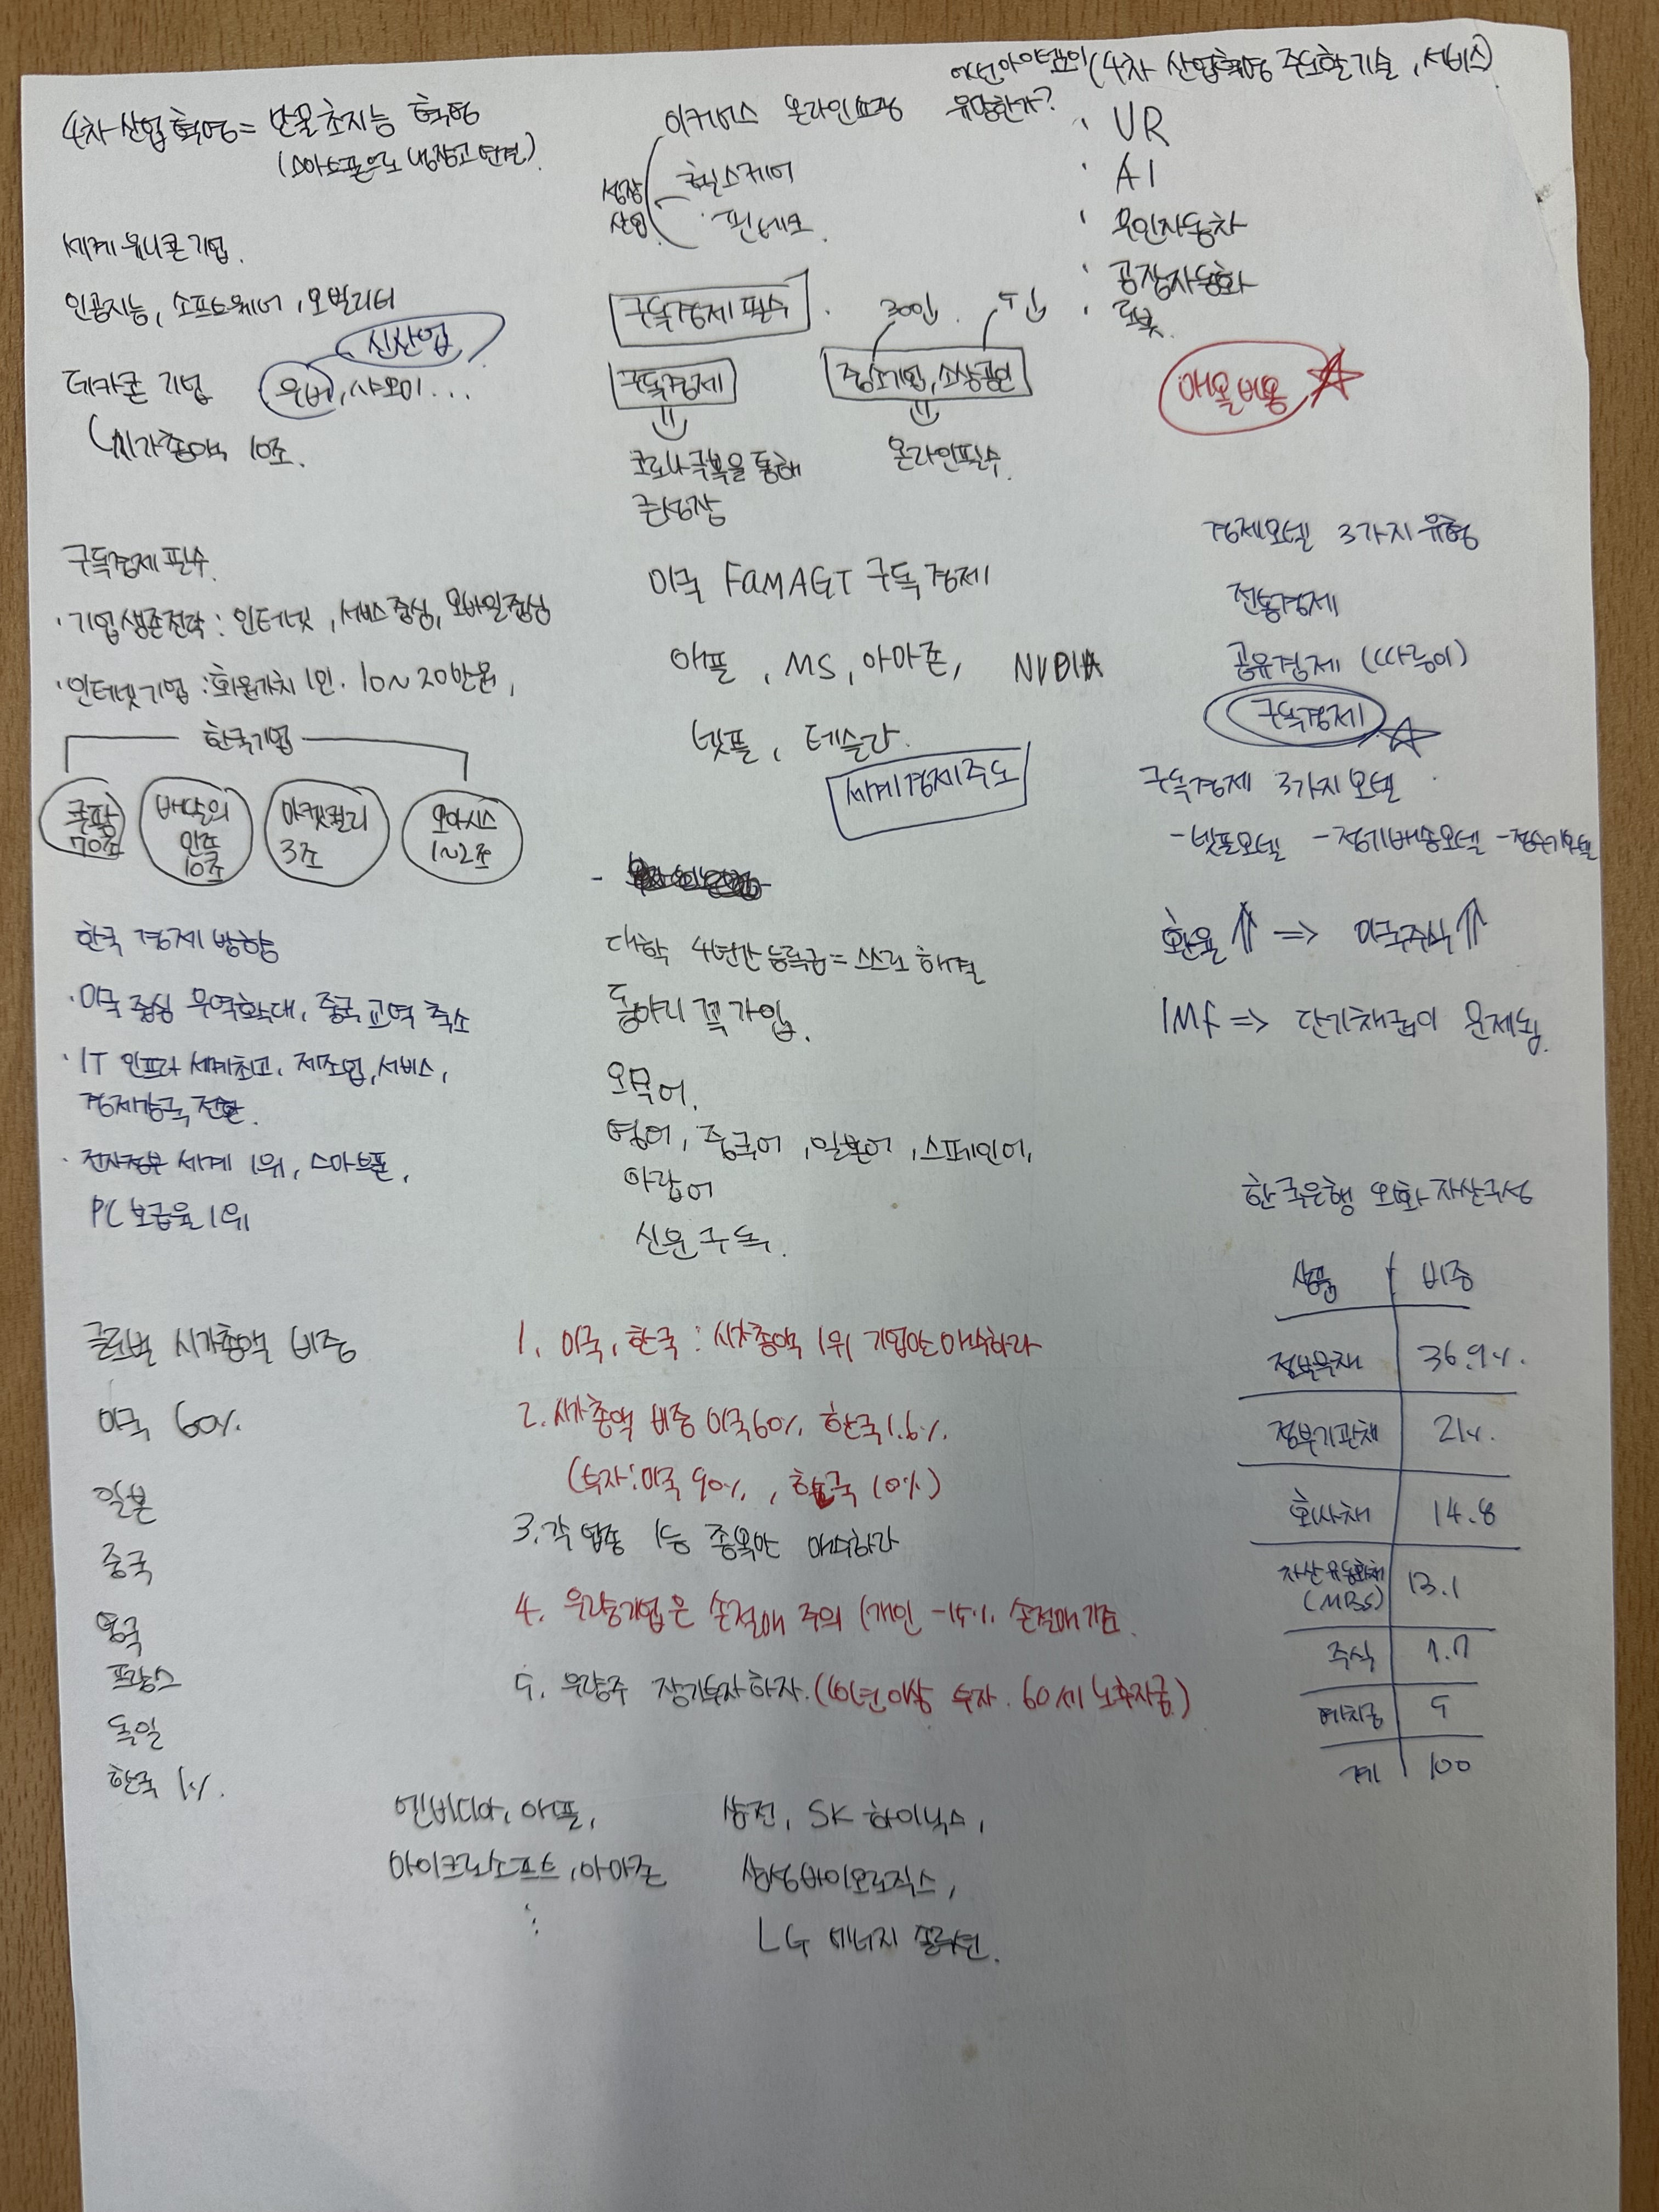 4차 산업 혁명 = 만물 초지능 혁명
(스마트폰으로 냉장고 연결)
세계 유니콘 기업.
인공지능, 소프트웨어, 모빌리티
신산업
데카콘 기업 우버, 샤오미...
시가총액 10조.
구독경제 필수.
· 기업생존전략 : 인터넷, 서비스중심, 모바일중심
· 인터넷기업 : 회원가치 1인. 10~20만원,
한국기업
쿠팡
70조
배달의
민족
10조
마켓컬리
3조
오아시스
1~2조
한국 경제 방향
· 미국 중심 무역확대, 중국 교역 축소
· IT 인프라 세계최고, 제조업, 서비스,
경제강국 전환.
· 전자정부 세계 1위, 스마트폰,
PC 보급율 1위
글로벌 시가총액 비중
미국 60%.
일본
중국
영국
프랑스
독일
한국 1%.
이커머스 온라인쇼핑
성장
산업
헬스케어
핀테크.
구독경제 필수.
30인. 5인
구독경제
중소기업, 소상공인
코로나극복을 통해
큰성장
온라인필수.
미국 FaMAGT 구독경제
애플, MS, 아마존, NVDIA
넷플, 테슬라.
세계경제주도
대학 4년간 등록금 = 스스로 해결
동아리 꼭 가입.
외국어.
영어, 중국어, 일본어, 스페인어,
아랍어
신문 구독.
1. 미국, 한국 : 시가총액 1위 기업만 매수하라
2. 시가총액 비중 미국60%, 한국1.6%.
(투자:미국 90%, 한국 10%)
3. 각 업종 1등 종목만 매수하라
4. 우량기업은 손절매 주의 (개인 -15% 손절매기준.
5. 우량주 장기투자하자. (10년이상 투자. 60세 노후자금)
엔비디아, 애플,
마이크로소프트, 아마존
⋮
삼전, SK 하이닉스,
삼성바이오로직스,
LG 에너지 솔루션.
어떤아이템이 (4차 산업혁명 주도할 기술, 서비스)
유망한가?
· VR
· AI
· 무인자동차
· 공장자동화
· 로봇.
매몰비용
경제모델 3가지 유형
전통경제
공유경제 (따릉이)
구독경제
구독경제 3가지 모델
- 넷플모델 - 정기배송모델 - 정수기모델
환율⇑ => 미국주식⇑
IMf => 단기채권이 문제됨.
한국은행 외화 자산구성
상품 비중
정부국채 36.9%.
정부기관채 21%.
회사채 14.8
자산유동화채
(MBS) 13.1
주식 7.7
예치금 5
계 100